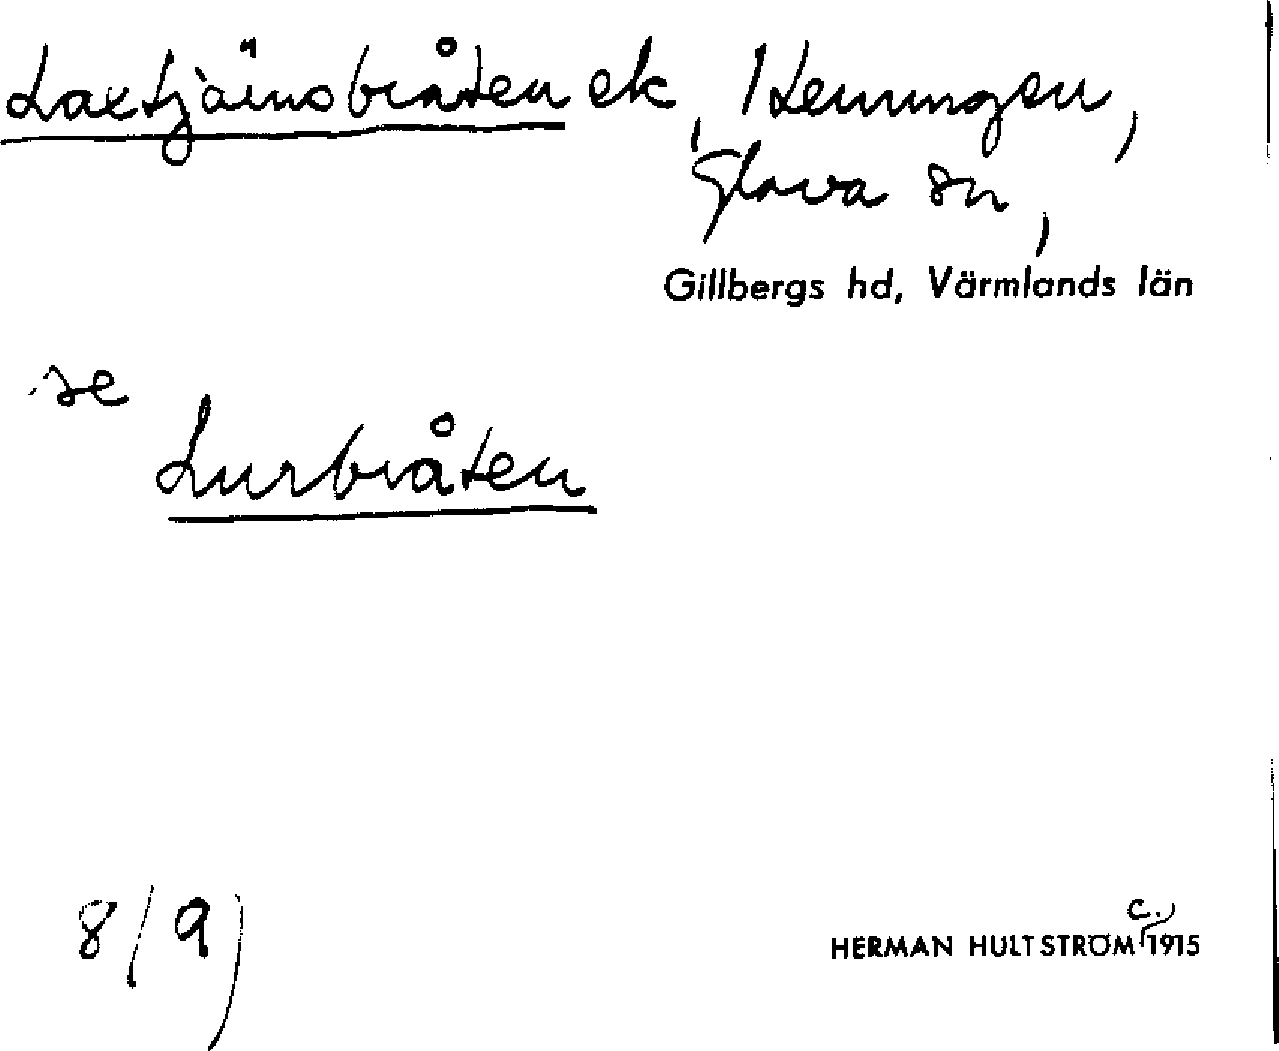 Laxtjärnsbråten ek, Henningsn,
Glava sn,
Gillbergs hd, Värmlands län
se
Lurbråten
8/9)
c.
HERMAN HULTSTRÖM 1915